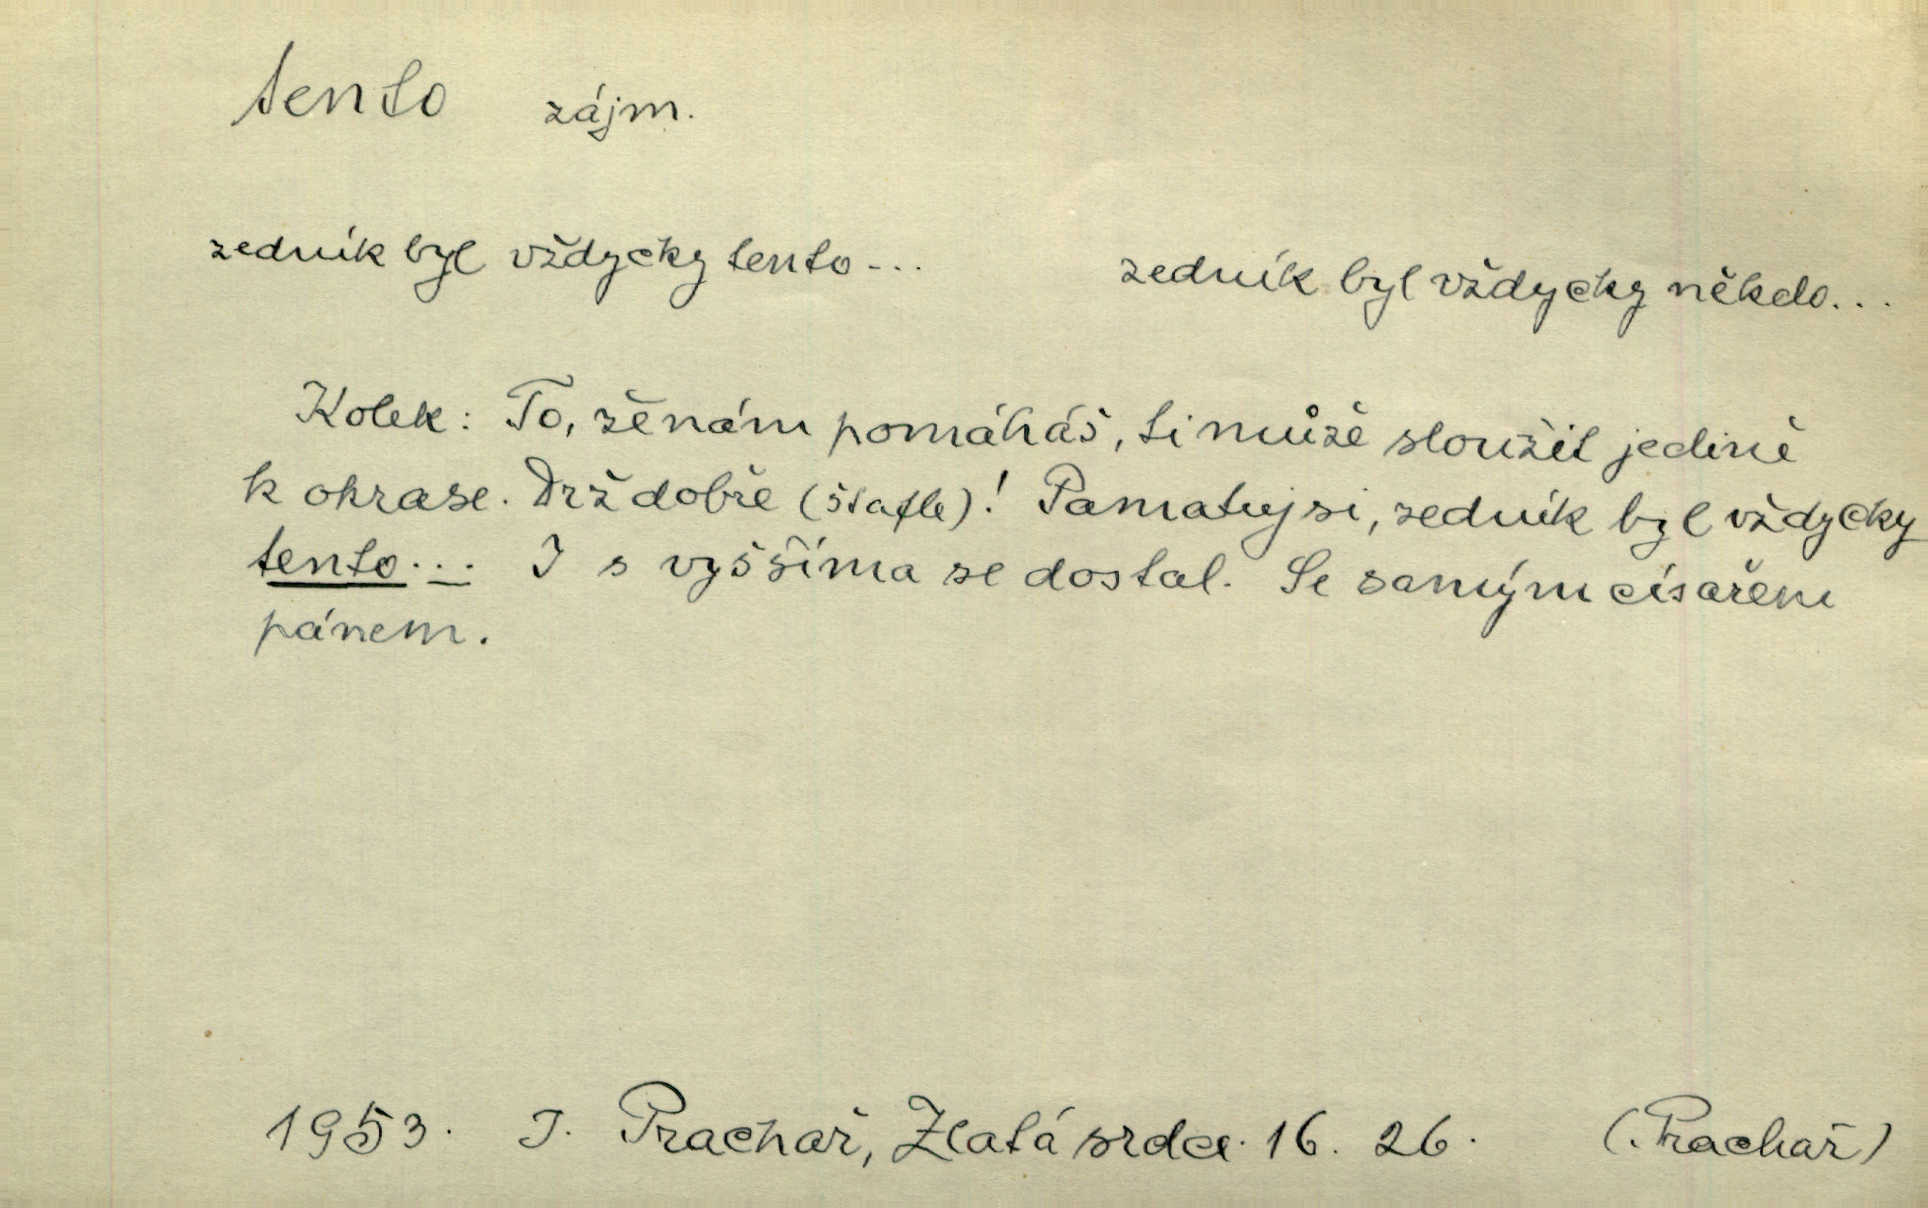 tento zájm.
zedník byl vždycky tento... zedník byl vždycky někdo...
Kolek: To, že nám pomáháš, ti může sloužit jedině
k okrase. Drž dobře (štafle)! Pamatuj si, zedník byl vždycky
tento... I s vyššíma se dostal. Se samým císařem
pánem.
1953. I. Prachař, Zlatá srdce. 16. 26. (Prachař)